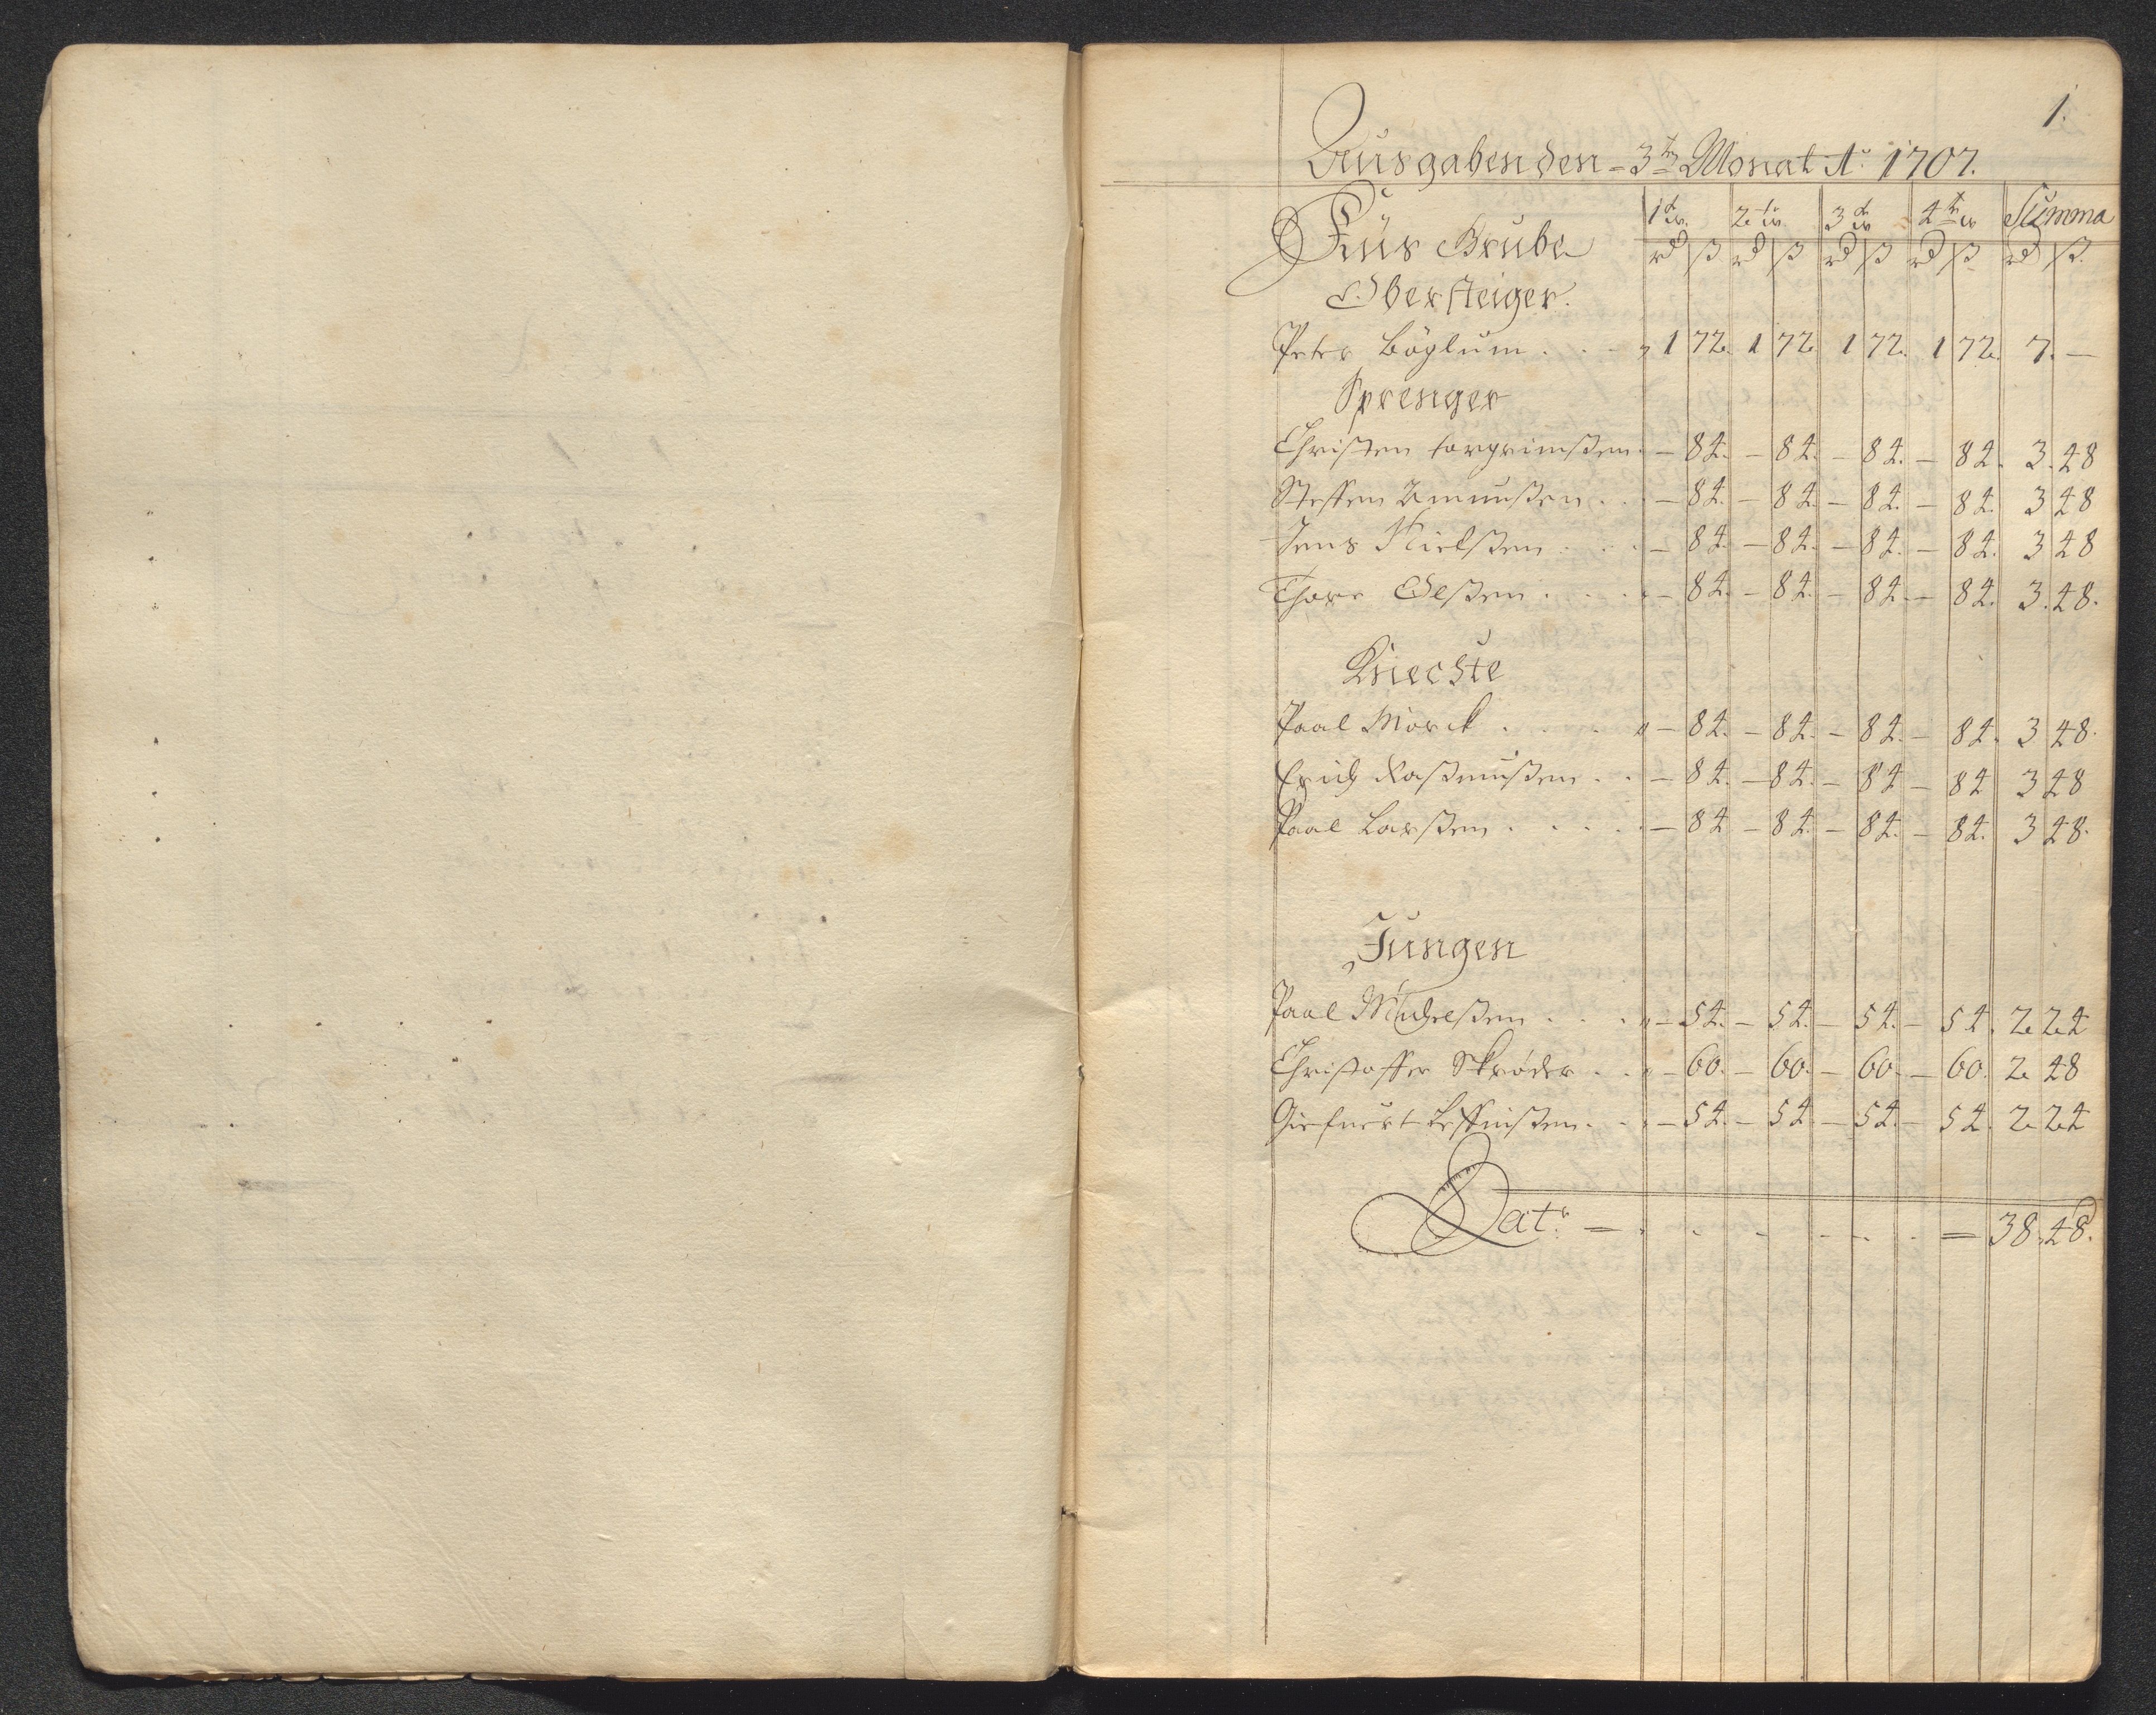 1.
Ausgaben den 3ten Monat Ao 1707.
Für Grube 1te w. 2te w 3te w 4te w Summa
rd ß rd ß rd ß rd ß rd ß
Obersteiger.
Peter Böglum . . . 1 72. 1 72. 1 72. 1 72. 7. —
Sprenger
Christen torgrimßen. — 84. — 84. — 84. — 84. 3. 48
Steffen Amunßen . . — 84. — 84. — 84. — 84. 3 48
Jens Nielßen . . . — 84. — 84. — 84. — 84. 3 48
Thore Olßen . . . . — 84. — 84. — 84. — 84. 3. 48.
Knechte
Paal Morck . . . . — 84. — 84. — 84. — 84. 3 48.
Erich Raßmußen . . — 84. — 84. — 84 — 84 3 48
Paal Larßen . . . . . — 84 — 84. — 84. — 84. 3 48.
Jungen
Paal Michelßen . . . — 54. — 54. — 54. — 54. 2 24
Christoffer Skröder . . — 60. — 60. — 60. — 60. 2 48
— 54. — 54 — 54. — 54. 2 24
Lat: = . . . . . = 38. 48.